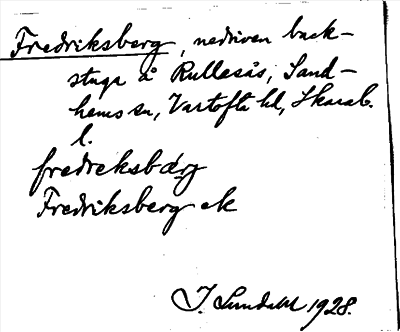 Fredriksberg, nedriven back-
stuga å Rullesås, Sand-
hems sn, Vartofta hd, Skarab.
l.
fredreksbærg
Fredriksberg ek
I. Lundahl 1928.